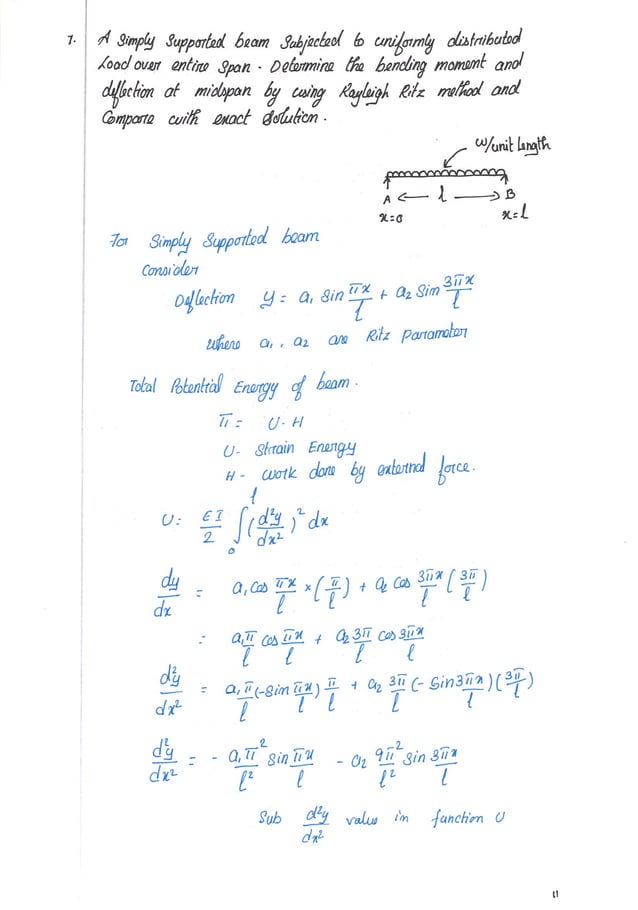 7. A Simply Supported beam Subjected to uniformly distributed
Load over entire Span. Determine the bending moment and
deflection at midspan by using Rayleigh Ritz method and
Compare with exact Solution.
w/unit length
A ← l → B
x=0 x=l
For Simply Supported beam
Consider
Deflection y = a₁ Sin πx/l + a₂ Sin 3πx/l
where a₁, a₂ are Ritz Parameter
Total Potential Energy of beam.
π = U-H
U- Strain Energy
H- work done by external force.
U: EI/2 ∫₀ˡ (d²y/dx²)² dx
dy/dx = a₁ Cos πx/l × (π/l) + a₂ Cos 3πx/l (3π/l)
: a₁π/l Cos πx/l + a₂3π/l Cos 3πx/l
d²y/dx² = a₁π/l (-Sin πx/l) π/l + a₂ 3π/l (- Sin 3πx/l) (3π/l)
d²y/dx² = - a₁π²/l² Sin πx/l - a₂ 9π²/l² Sin 3πx/l
Sub d²y/dx² value in function U
11